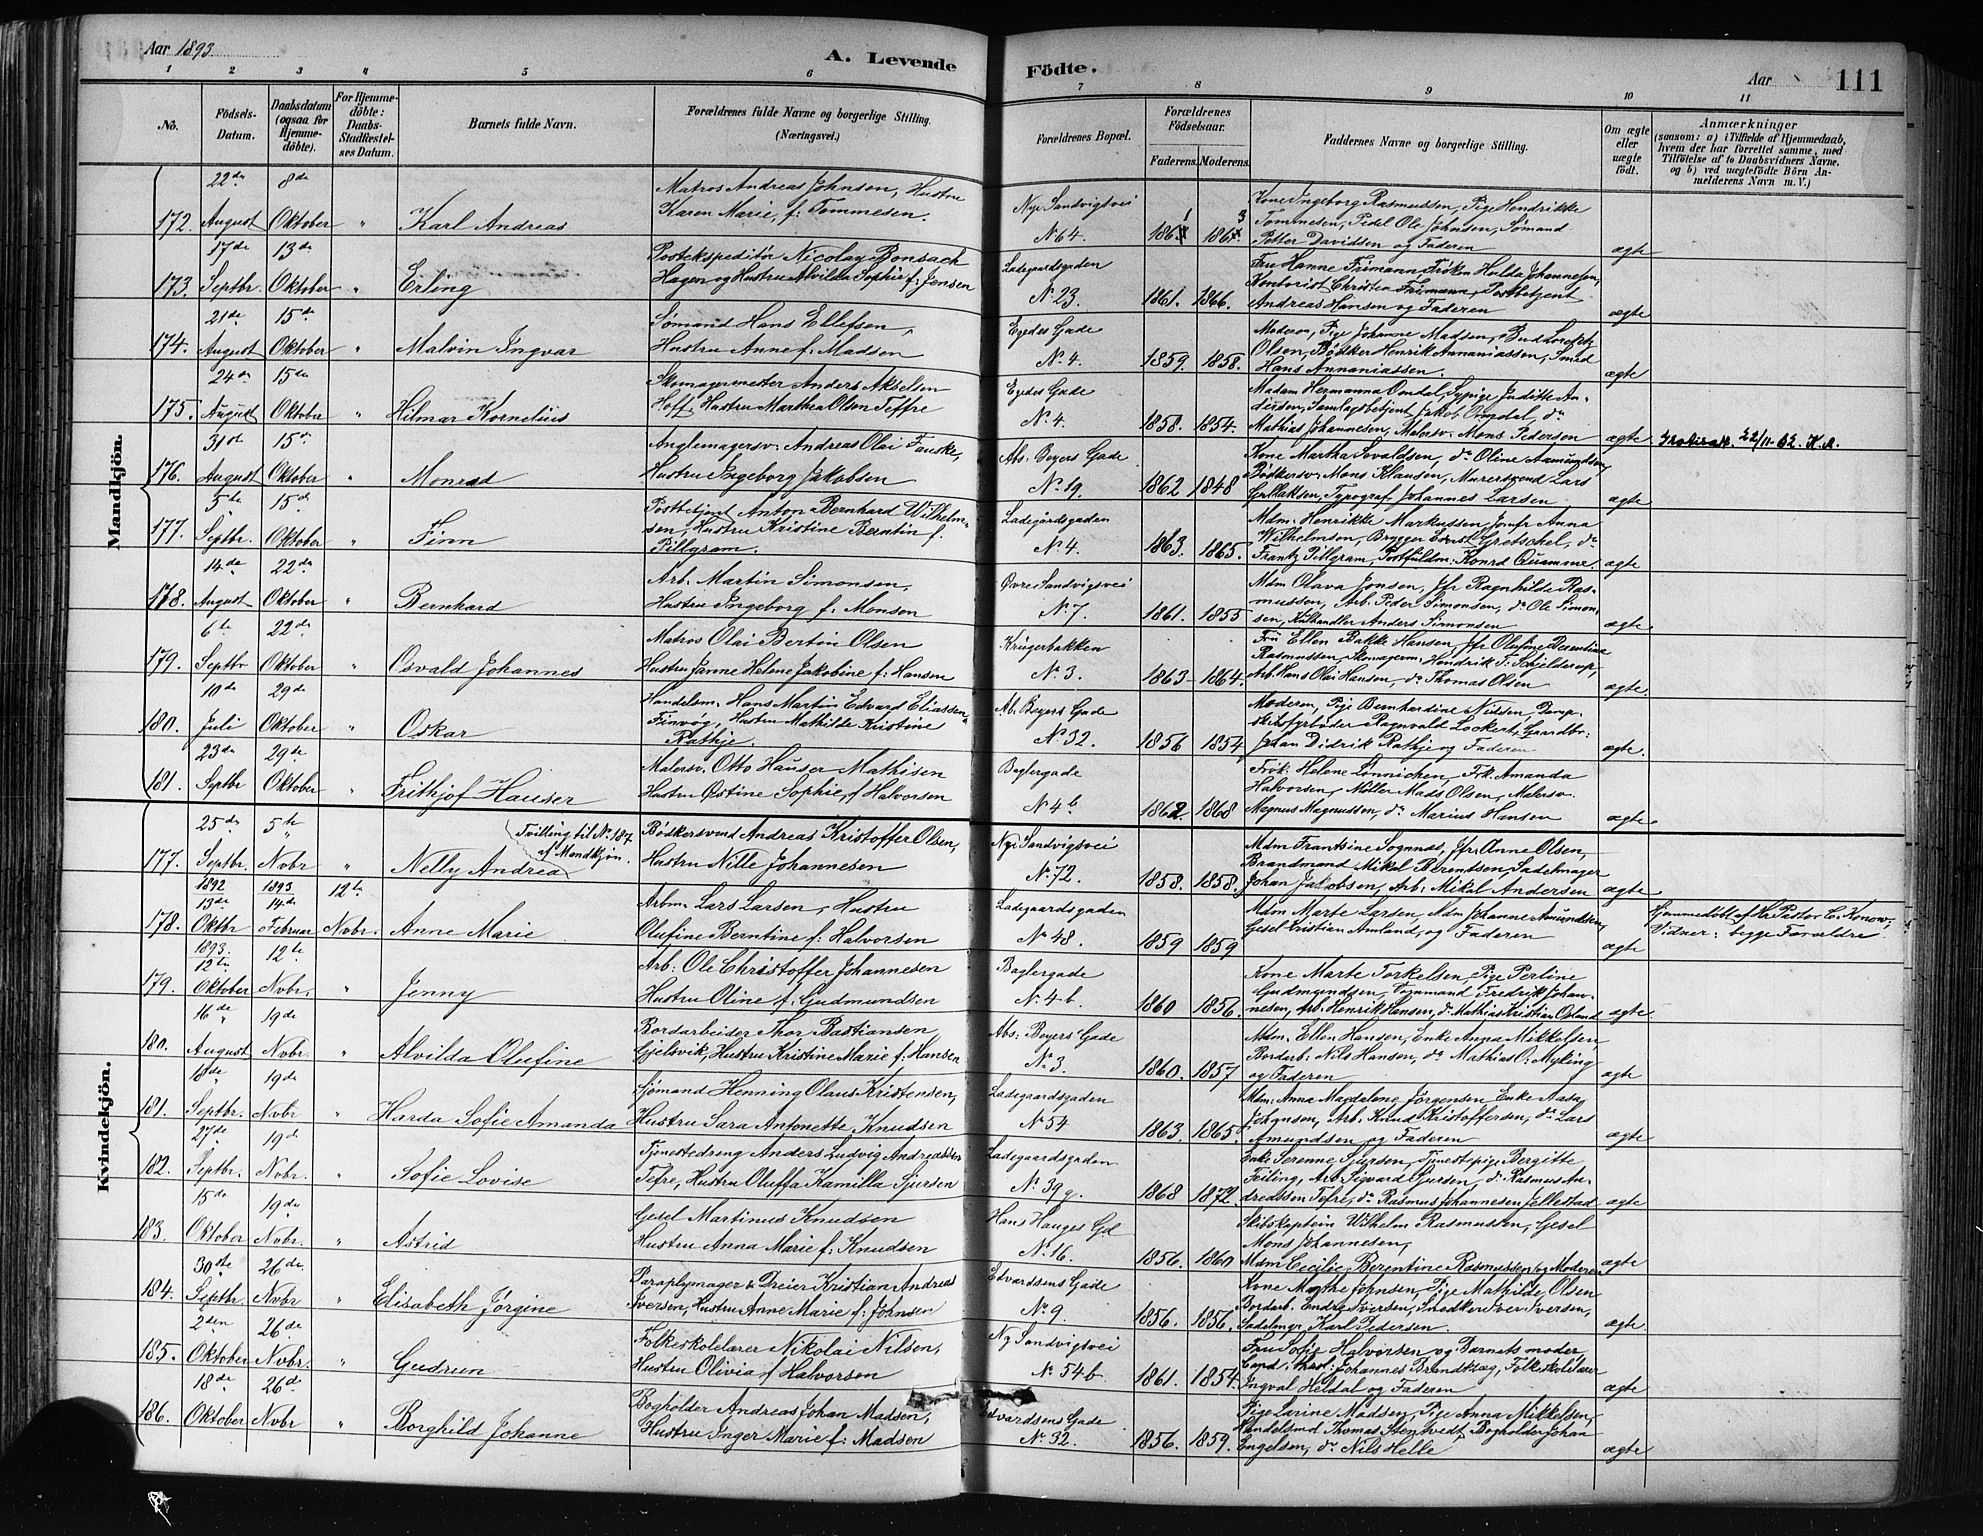 Aar 1893
A. Levende
Födte.
Aar
111
1 2 3 4 5 6 7 8 9 10 11
No.
Födsels-Datum.
Daabsdatum (ogsaa for Hjemmedöbte).
For Hjemmedöbte: Daabs-Stadfæstelses Datum.
Barnets fulde Navn.
Forældrenes fulde Navne og borgerlige Stilling.
(Næringsvei.)
Forældrenes Bopæl.
Forældrenes Födselsaar.
Faderens. Moderens.
Faddernes Navne og borgerlige Stilling.
Om ægte eller uægte födt.
Anmærkninger
(saasom: a) i Tilfælde af Hjemmedaab, hvem der har forrettet samme, med Tilföielse af to Daabsvidners Navne. og b) ved uægtefödte Börn Anmelderens Navn m. V.)
Mandkjön.
172. 22de August 8de Oktober " Karl Andreas
Matros Andreas Johnsen, Hustru
Karen Marie, f: Tommesen.
Nye Sandvigsvei
No 64.
Kone Ingeborg Rasmussen, Pige Hendrikke
Tommesen, Pedel Ole Johnsen, Sømand
Petter Davidsen og Faderen
ægte
173. 17de Septbr. 13de Oktober " Erling
Postekspeditør Nicolay Bonsach
Hagen og Hustru Alvilda Sophie f: Jensen
Ladegaardsgaden
No 23. 1861. 1866.
Fru Hanne Frimann, Frøken Hulda Johannesen,
Kontorist Christen Frimann, Postbetjent
Andreas Hansen og Faderen
ægte
174. 21de August 15de Oktober " Malvin Ingvar
Sømand Hans Ellefsen,
Hustru Anne f: Madsen
Egedes Gade
No 4. 1859. 1858.
Moderen, Pige Johanne Madsen, Bud Lorentz
Olsen, Bødker Henrik Annaniassen, Smed
Hans Annaniassen.
ægte
175. 24de August 15de Oktober " Hilmar Kornelius
Skomagermester Anders Akselsen
Hoff, Hustru Marthea Olsen Teffre
Egedes Gade
No 4. 1858. 1854.
Madam Hermanna Omdal, Sypige Juditte Andersen, Samlagsbetjent Jakob Omdal, do
Mathias Johannesen, Malersv: Mons Pedersen
ægte 22/11-62. K.A.
176. 31st August 15de Oktober " Monrad
Anglemagersv: Andreas Olai Fauske,
Hustru Ingeborg Jakobsen
Abs: Beyers Gade
No 19. 1862 1848
Kone Martha Sevaldsen, do Oline Aamundsen
Bødkersv: Mons Klausen, Murersvend Lars
Gullaksen, Typograf Johannes Larsen
ægte
177. 5te Septbr. 15de Oktober " Finn
Postbetjent Anton Bernhard Wilhelmsen, Hustru Kristine Berntin f.
Pillgram.
Ladegårdsgaden
No 4. 1863. 1865.
Mdm: Henrikke Markussen, Jomfr Anna
Wilhelmsen, Brygger Ernst Gretschel, do
Frantz Pillgram, Postfuldm: Konrd Quamme.
ægte
178. 14de August 22de Oktober " Bernhard
Arb: Martin Simonsen,
Hustru Ingeborg f: Monsen
Øvre Sandvigsvei
No 7. 1861. 1855
Mdm Olava Jonsen, Jfr Ragnhilde Rasmussen, Arb: Peder Simonsen, do Ole Simonsen, Anders Simonsen
ægte
179. 6te Septbr 22de Oktober " Osvald Johannes
Matros Olai Bertin Olsen
Hustru Janne Helene Jakobine f: Hansen
Krügerbakken
No 3. 1863 1864.
Frü Ellen Bakke Hansen, Jfr Olufine Berentine
Rasmussen, Skomagerm: Hendrik F: Schjelderup,
Arb. Hans Olai Hansen, do Thomas Olsen
ægte
180. 10de Juli 29de Oktober " Oskar
Handelsm: Hans Martin Edvard Eliassen
Finvåg, Hustru Mathilde Kristine
Rathje.
Ab. Beyers Gade
No 32. 1856 1854
Moderen, Pige Bernhardine Nielsen, Dampskibsfyrbøder Ragnvald Lockert,
Johan Didrik Rathje og Faderen
ægte
181. 23de Septbr 29de Oktober " Frithjof Hauser
Malersv: Otto Hauser Mathisen
Hustru Østine Sophie, f Halvorsen
Baglergade
No 4b 1862 1868
Frøk: Helene Lønnichen, Frk. Amanda
Halvorsen, Møller Mads Olsen, Malersv.
Magnus Magnussen, do Marius Hansen
ægte
Kvindekjön.
177. 25de Septbr. 5te Novbr " Nelly Andrea
(Tvilling til No. 187 af Mandkjøn.)
Bødkersvend Andreas Kristoffer Olsen,
Hustru Nille Johannesen
Nye Sandvigsvei
No 72. 1858. 1858.
Mdm Frantsine Sognnæs, Jfr: Anne Olsen,
Brandmand Mikal Berendsen, Sadelmager
Johan Jakobsen, Arb: Mikal Andersen
ægte
178. 1892 13de Oktbr 1893 14de Februar 12te Nvbr. Anne Marie
Arbm: Lars Larsen, Hustru
Olufine Berntine f: Halvorsen
Ladegaardsgaden
No 48. 1859 1859
Mdm Marte Larsen, Mdm Johanne Amundsen,
Gesel Kristien Amland, og Faderen
ægte
Hjemmedøbt af Hr Pastor C. Konow,
Vidner: begge Forældre.
179. 1893. 12te Oktober 12te Nvbr. " Jenny
Arb: Ole Christoffer Johannesen
Hustru Oline f: Gudmundsen
Baglergade
No 4b. 1860 1856.
Kone Marte Torkelsen, Pige Perline
Gudmundsen, Tømmand Fredrik Johannesen, Arb. Henrik Hansen, do Mathias Kristian Opland
ægte
180. 16de August 19de Nvbr. " Alvilda Olufine
Bordarbeider Thor Bastiansen
Gjelsvik, Hustru Kristine Marie f: Hansen
Abs: Beyers Gade
No 3. 1860. 1857
Mdm: Ellen Hansen, Enke Anna Mikkelsen
Bordarb: Nils Hansen, do Mathias O: Myking
og Faderen
ægte
181. 18de Septbr. 19de Nvbr " Harda Sofie Amanda
Sjømand Henning Olaus Kristensen,
Hustru Sara Antonette Knudsen
Ladegaardsgaden
No 54 1863. 1865.
Mdm: Anna Magdelene Jørgensen Enke Aasa
Johnsen, Arb. Knud Kristoffersen, do Lars
Amundsen og Faderen
ægte
182. 27de Septbr. 19de Nvbr. " Sofie Lovise
Tjenestedreng Anders Ludvig Andreassen
Tefre, Hustru Oluffa Kamilla Sjursen
Ladegaardsgaden
No 39g. 1868 1872.
Enke Serenne Sjursen, Tjenestepige Bergitte
Feiling, Arb Sigvard Sjursen, do Rasmus Andreassen Tefre, do Rasmus Johannesen Jellestad
ægte
183. 15de Oktober 19de Nvbr. " Astrid
Gesel Martinus Knudsen
Hustru Anna Marie f: Knudsen
Hans Hauges Gd
No 16. 1856. 1860
Skibskaptein Wilhelm Rasmussen, Gesel
Mons Johannesen,
Mdm Cecilie Berentine Rasmussen og Moderen
ægte
184. 30te Septbr. 26de Nvbr " Elisabeth Jørgine
Paraplymager & Dreier Kristian Andreas
Iversen, Hustru Anne Marie f: Johnsen
Edvardsens Gade
No 9. 1856. 1856.
Kone Marthe Johnsen, Pige Mathilde Olsen
Bordarb. Endre Iversen, Snedker Iver Iversen,
Sadelmgr Karl Pedersen.
ægte
185. 2den Oktober 26de Nvbr. " Gudrun
Folkeskolelærer Nikolai Nilsen,
Hustru Olivia f Halvorsen
Ny Sandvigsvei
No 54b. 1861. 1854
Fru Sofie Halvorsen og Barnets moder
Cand. theol: Johannes Brandtzæg, Folkeskolelærer
Ingval Heldal og Faderen
ægte
186. 18de Oktober 26de Nvbr " Borghild Johanne
Bogholder Andreas Johan Madsen,
Hustru Inger Marie f: Madsen
Edvardsens Gade
No 32. 1856. 1859.
Pige Larine Madsen, Pige Anna Mikkelsen,
Handelsmd Thomas Stentvedt, Bogholder Johan
Engelsen, do Nils Helle
ægte